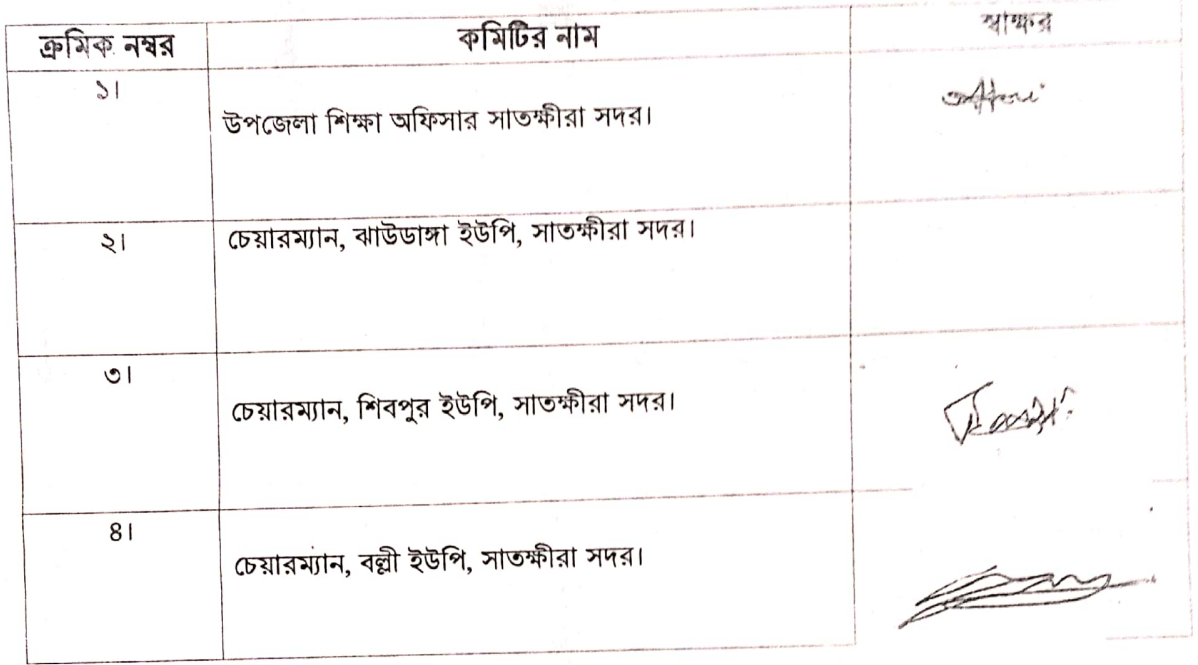 ক্রমিক নম্বর কমিটির নাম স্বাক্ষর
১।
উপজেলা শিক্ষা অফিসার সাতক্ষীরা সদর।
২। চেয়ারম্যান, ঝাউডাঙ্গা ইউপি, সাতক্ষীরা সদর।
৩।
চেয়ারম্যান, শিবপুর ইউপি, সাতক্ষীরা সদর।
৪।
চেয়ারম্যান, বল্লী ইউপি, সাতক্ষীরা সদর।